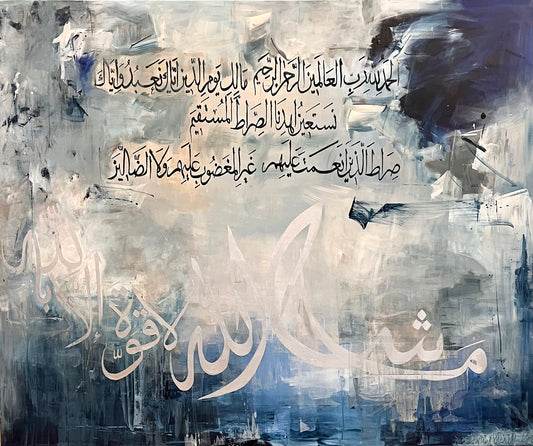 الحمد لله رب العالمين الرحمن الرحيم مالك يوم الدين اياك نعبد واياك
نستعين اهدنا الصراط المستقيم
صراط الذين انعمت عليهم غير المغضوب عليهم ولا الضالين
ما شاء الله لا قوة الا بالله